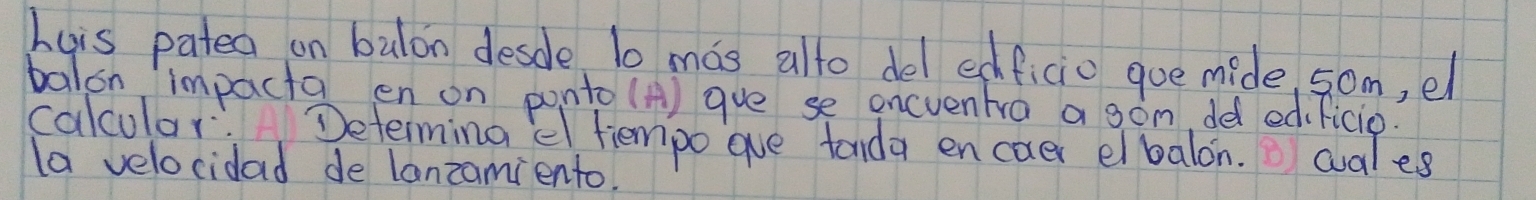 Luis patea un balón desde lo más alto del edificio que mide 50m, el
balón impacta en un punto (A) que se encuentra a 90m del edificio.
Calcular: A) Determina el tiempo que tarda en caer el balón. B) cual es
la velocidad de lanzamiento.